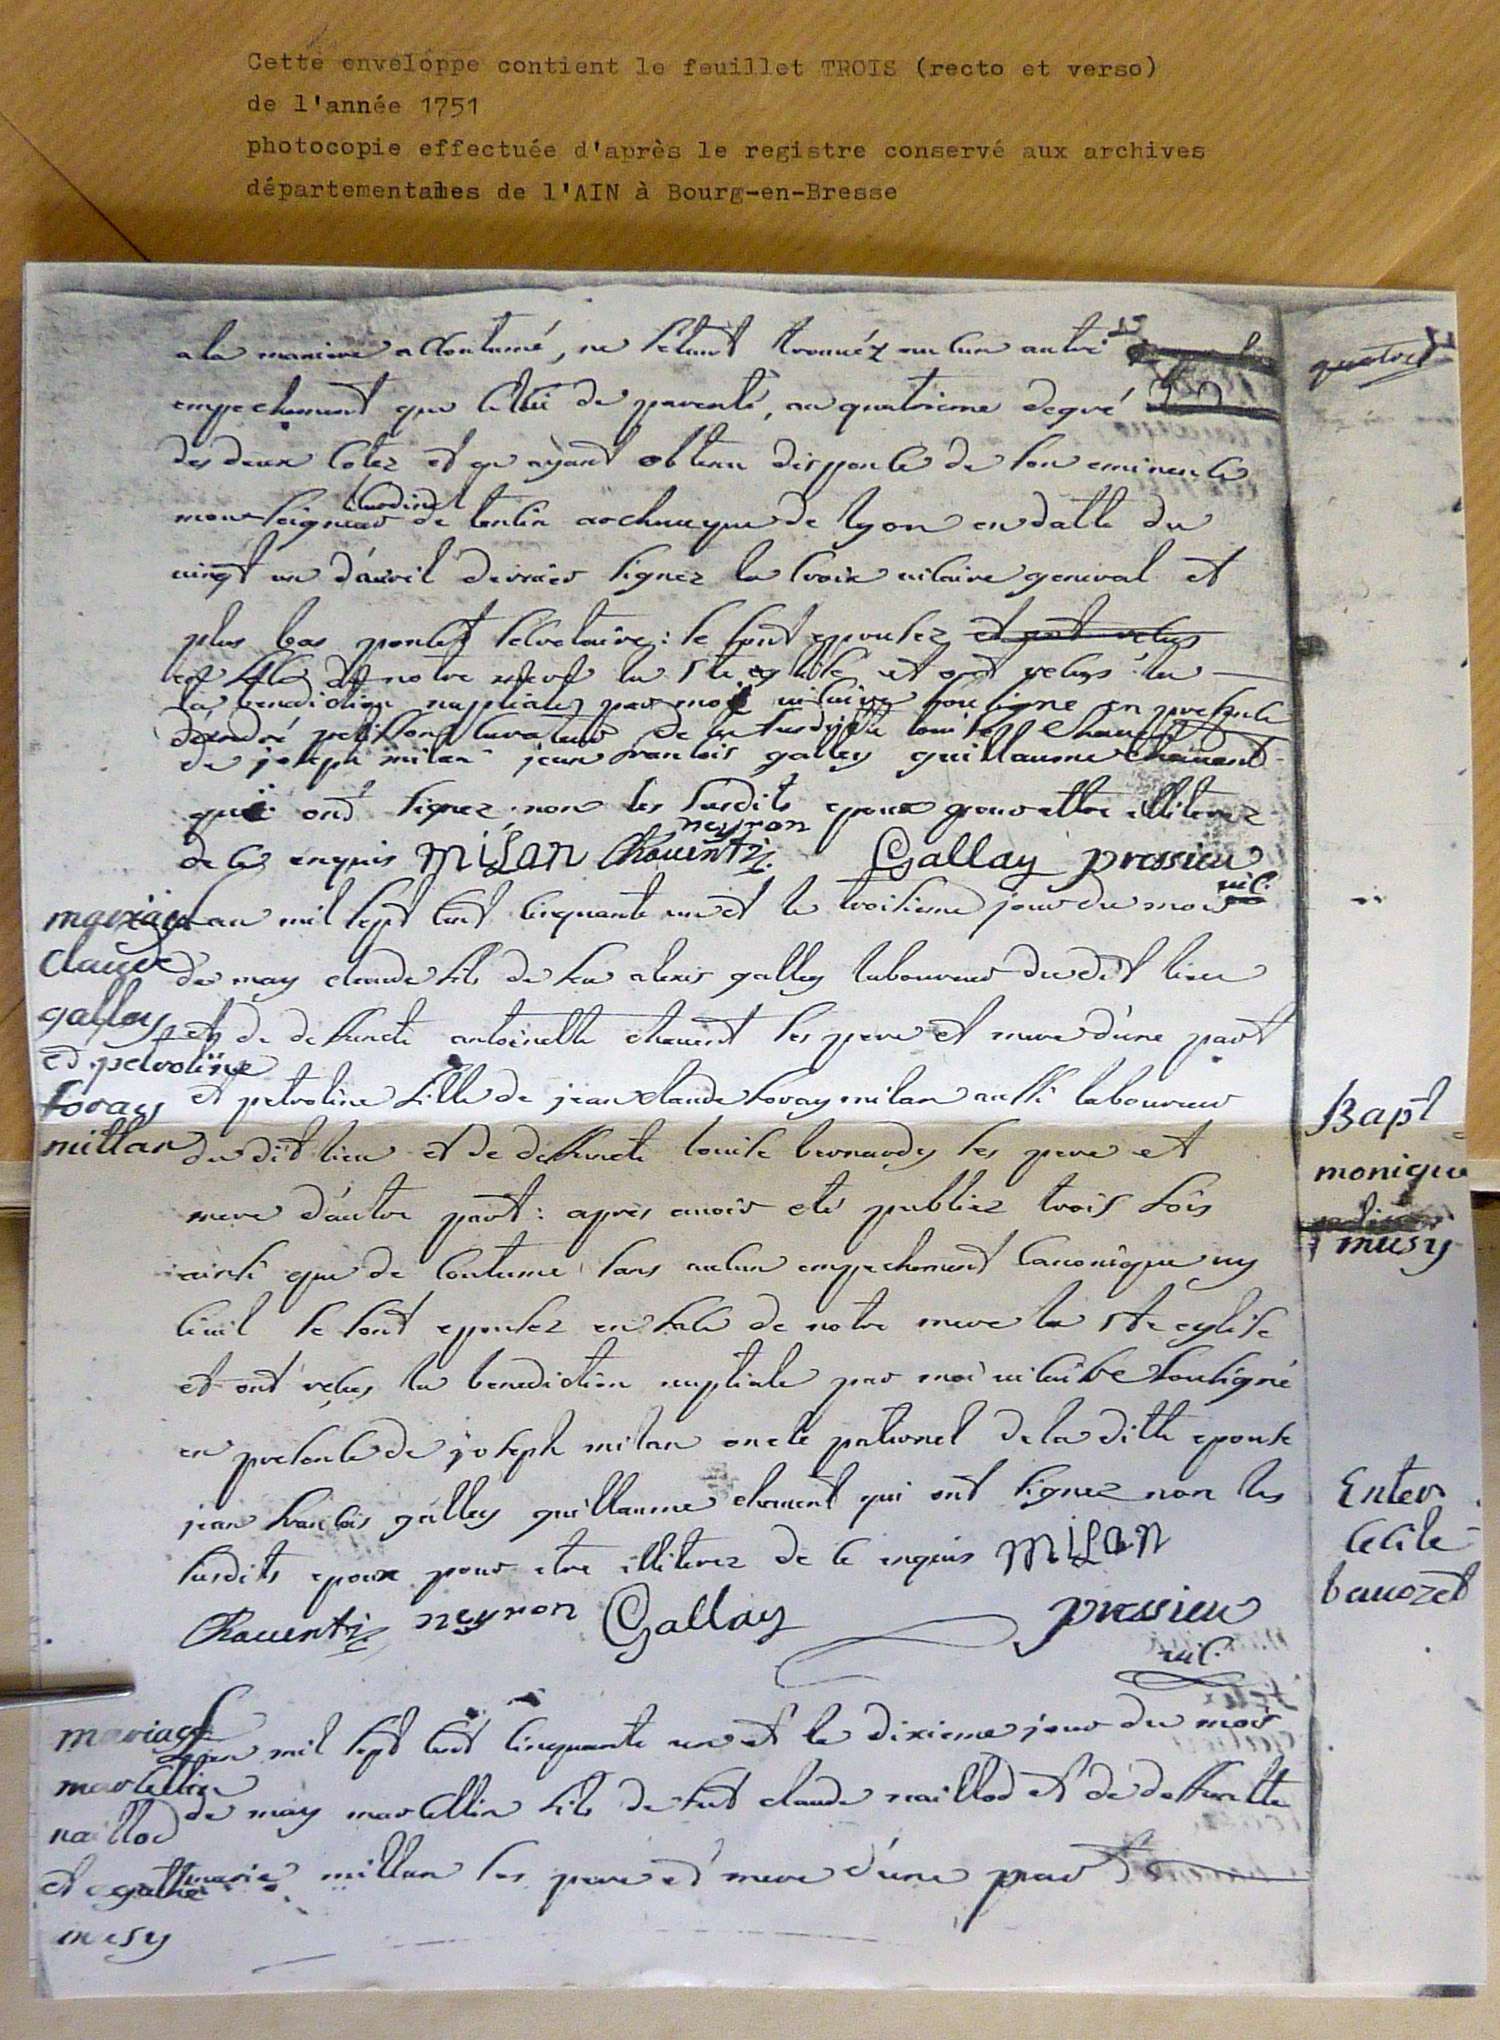 Cette enveloppe contient le feuillet TROIS (recto et verso)
de l'année 1751
photocopie effectuée d'après le registre conservé aux archives
départementales de l'AIN à Bourg-en-Bresse
a la maniere accoutumé, ne s'étant trouuéz aucun autre
empechement que celui de parenté, au quatrieme degré
des deux cotez et en ayant obtenu dispence de son eminence
monseigneur cardinal de tencin archeueque de lyon en datte du
uingt un d'auril dernier signez la croix uicaire general et
plus bas poncet secretaire : se sont epousez et ont reçus
en face de notre mere la ste eglise et ont reçus la
la benediction nuptiale par moi uicaire soussigne en presence
de joseph milan jean francois galley guillaume chauent
qui ont signez non les susdits epoux pour etre illiterez
neyron
de ce enquis milan Chauentz Gallay pressieu
uic.
mariage
Claude
galley
et petroline
foray
millan
L'an mil sept cent cinquante un et le troisieme jour du mois
de may claude fils de feu alexis galley laboureur du dit lieu
et de deffuncte antoinette chauent ses pere et mere d'une part
et petroline fille de jean claude foray milan aussi laboureur
du dit lieu et de deffuncte louise bernardy ses pere et
mere d'autre part : apres auoir eté publiez trois fois
ainsi que de coutume sans aucun empechement canonique ny
ciuil se sont epousez en face de notre mere la ste eglise
et ont reçus la benediction nuptiale par moi uicaire soussigné
en presence de joseph milan oncle paternel de la ditte epouse
jean francois galley guillaume chauent qui ont signez non les
susdits epoux pour etre illiterez de ce enquis milan
Chauentz neyron Gallay pressieu
uic.
mariage
marcellin
naillod
et agathe
musy
L'an mil sept cent cinquante un et le dixieme jour du mois
de may marcellin fils de feu claude naillod et de deffuncte
marie millan ses pere et mere d'une part
Bapt
monique
musy
Enter
Cecile
bauozet